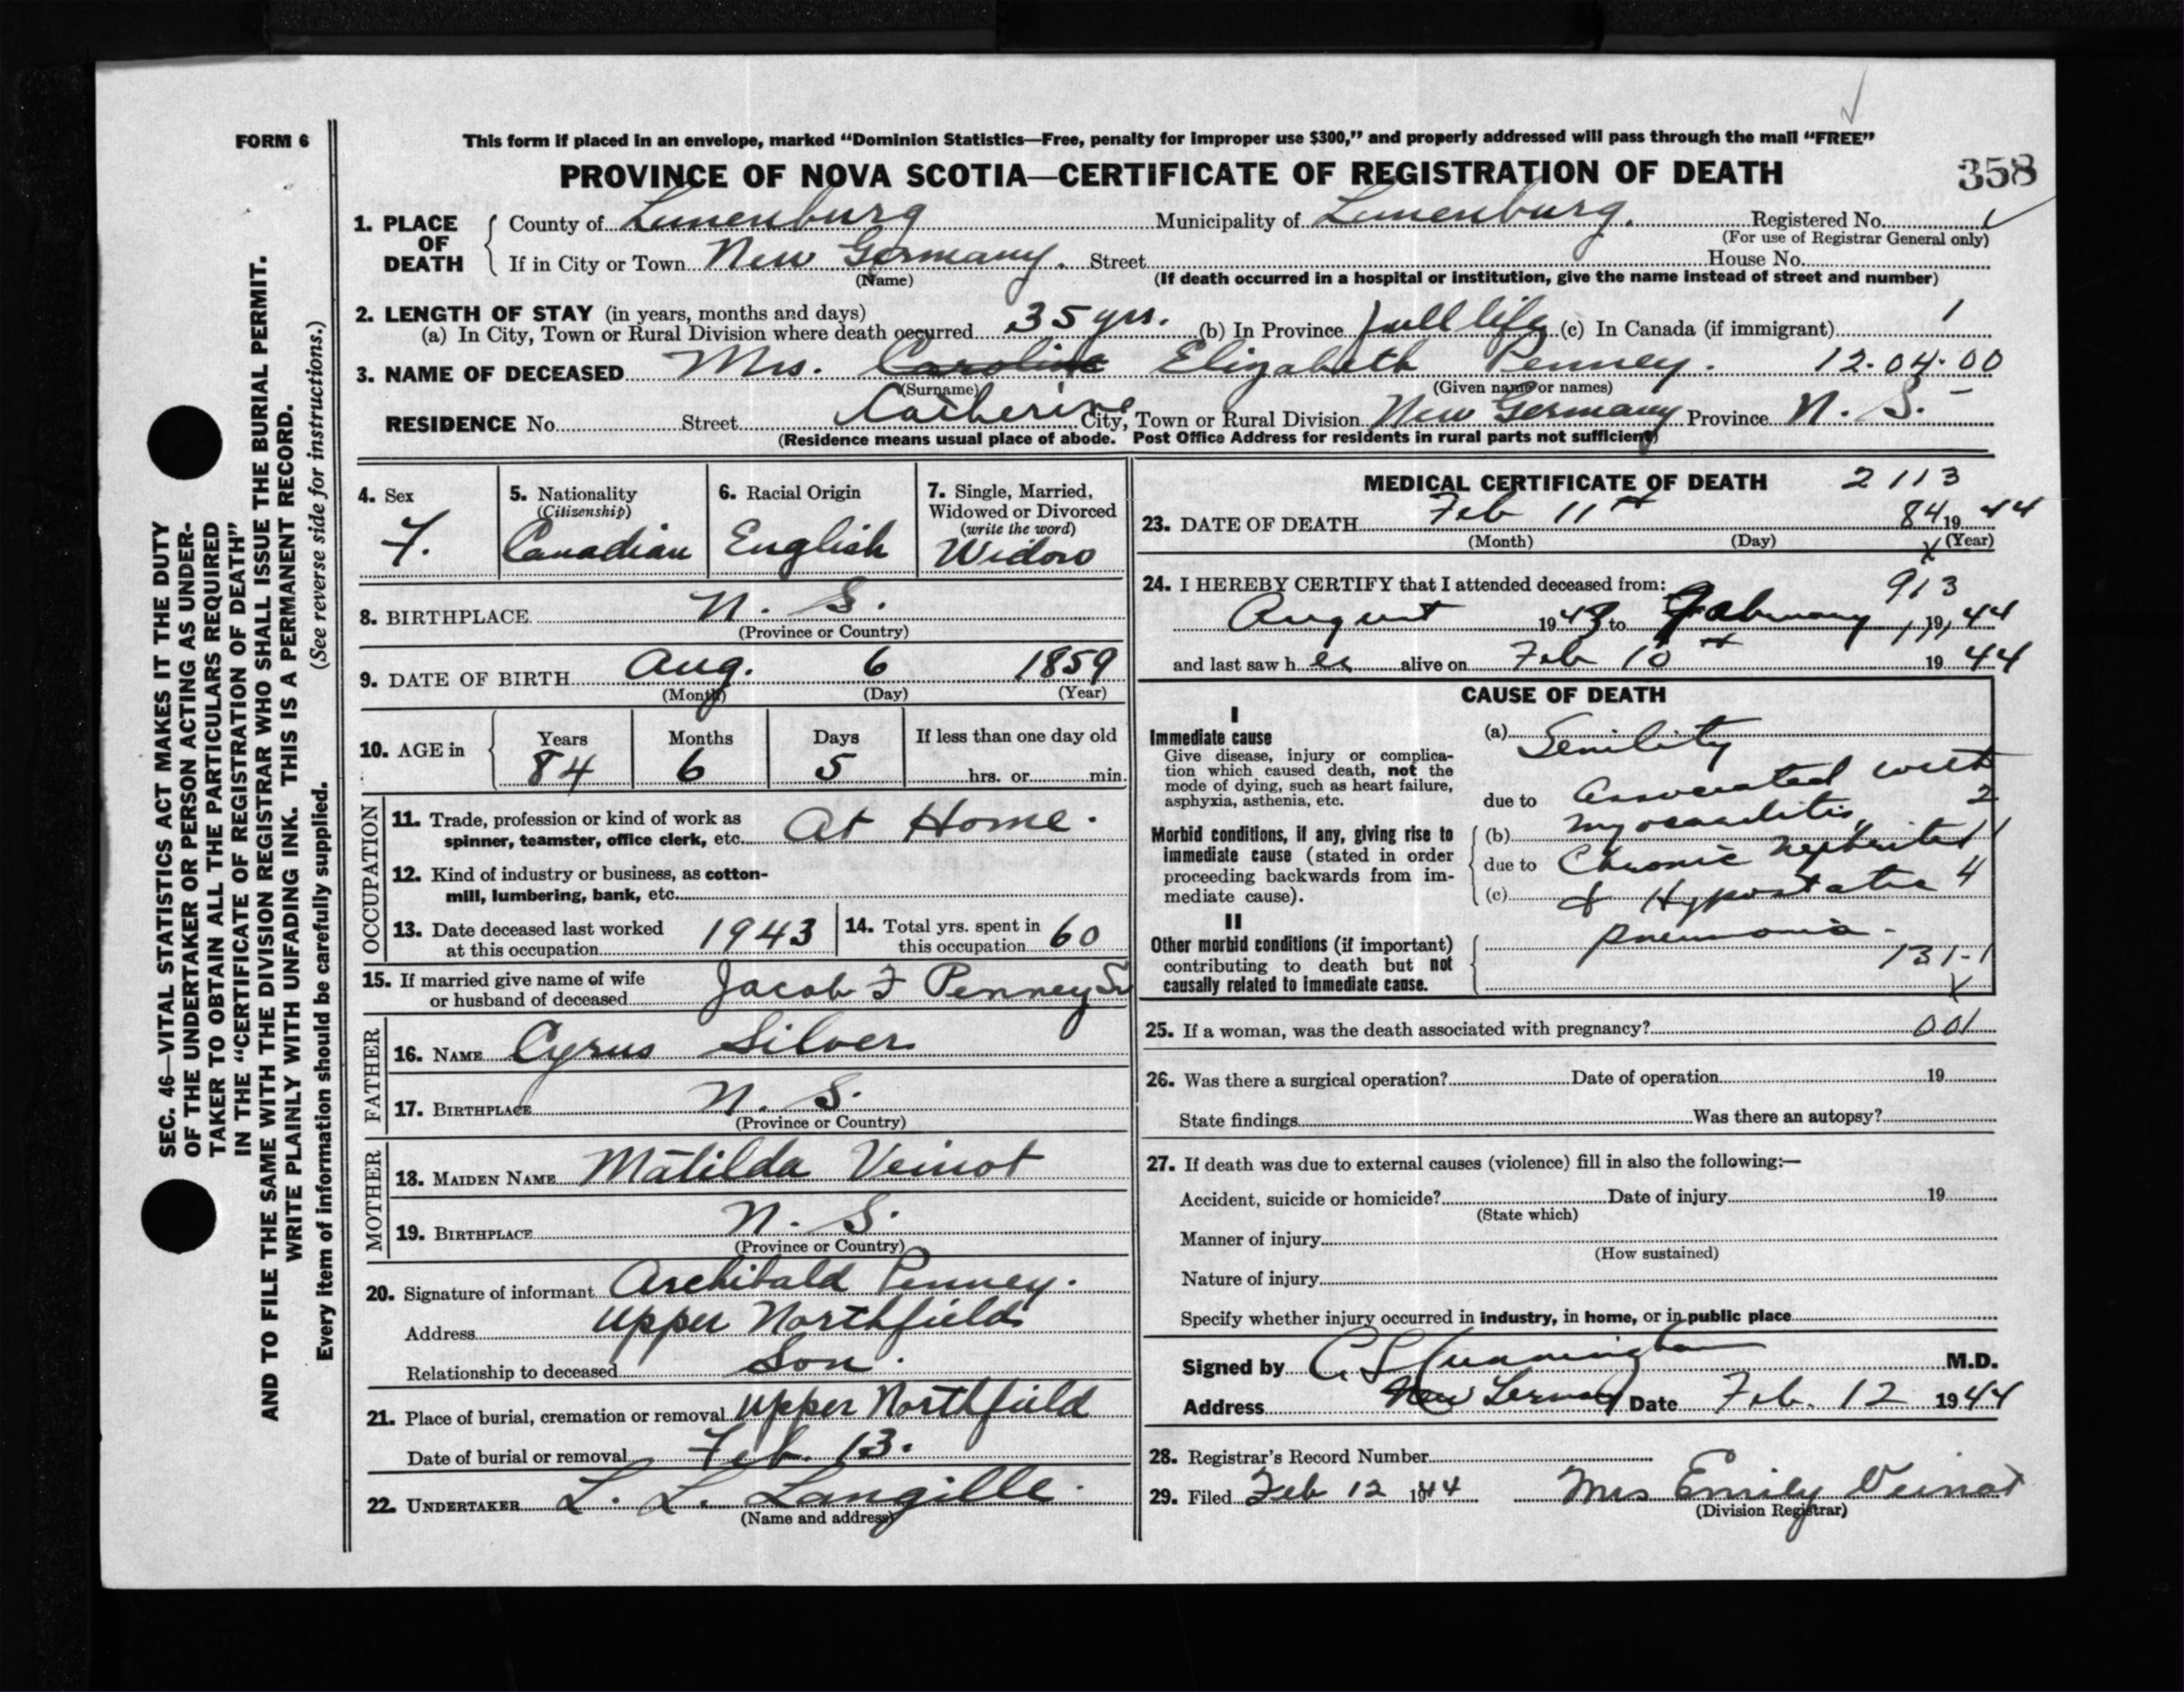 FORM 6
This form if placed in an envelope, marked “Dominion Statistics—Free, penalty for improper use $300,” and properly addressed will pass through the mail “FREE”
PROVINCE OF NOVA SCOTIA—CERTIFICATE OF REGISTRATION OF DEATH
358
1. PLACE OF DEATH
County of Lunenburg Municipality of Lunenburg. Registered No.
(For use of Registrar General only)
If in City or Town New Germany. Street House No.
(Name) (If death occurred in a hospital or institution, give the name instead of street and number)
2. LENGTH OF STAY (in years, months and days)
(a) In City, Town or Rural Division where death occurred 35 yrs. (b) In Province full life (c) In Canada (if immigrant) 1
3. NAME OF DECEASED Mrs. Caroline Elizabeth Penney. 12.04.00
(Surname) (Given name or names)
Catherine
RESIDENCE No. Street City, Town or Rural Division New Germany Province N. S.
(Residence means usual place of abode. Post Office Address for residents in rural parts not sufficient)
4. Sex
F.
5. Nationality
(Citizenship)
Canadian
6. Racial Origin
English
7. Single, Married,
Widowed or Divorced
(write the word)
Widow
8. BIRTHPLACE N. S.
(Province or Country)
9. DATE OF BIRTH Aug. 6 1859
(Month) (Day) (Year)
10. AGE in Years Months Days If less than one day old
84 6 5 hrs. or min.
OCCUPATION
11. Trade, profession or kind of work as
spinner, teamster, office clerk, etc. At Home.
12. Kind of industry or business, as cotton-
mill, lumbering, bank, etc.
13. Date deceased last worked
at this occupation 1943
14. Total yrs. spent in
this occupation 60
15. If married give name of wife
or husband of deceased Jacob F Penney Sr
FATHER
16. NAME Cyrus Silver
17. BIRTHPLACE N. S.
(Province or Country)
MOTHER
18. MAIDEN NAME Matilda Veinot
19. BIRTHPLACE N. S.
(Province or Country)
20. Signature of informant Archibald Penney.
Address Upper Northfield
Relationship to deceased Son.
21. Place of burial, cremation or removal Upper Northfield
Date of burial or removal Feb. 13.
22. UNDERTAKER L. L. Langille.
(Name and address)
MEDICAL CERTIFICATE OF DEATH 2113
23. DATE OF DEATH Feb 11th 84 1944
(Month) (Day) (Year)
x
24. I HEREBY CERTIFY that I attended deceased from: 913
August 1943 to February 11, 1944
and last saw her alive on Feb 10th 1944
CAUSE OF DEATH
I
Immediate cause
Give disease, injury or complica-
tion which caused death, not the
mode of dying, such as heart failure,
asphyxia, asthenia, etc.
Morbid conditions, if any, giving rise to
immediate cause (stated in order
proceeding backwards from im-
mediate cause).
II
Other morbid conditions (if important)
contributing to death but not
causally related to immediate cause.
(a) Senility
due to Associated with
2
(b) myocarditis, 11
due to Chronic Nephritis
(c) & Hypostatic 4
pneumonia.
131-1
x
25. If a woman, was the death associated with pregnancy? 001
26. Was there a surgical operation? Date of operation 19
State findings Was there an autopsy?
27. If death was due to external causes (violence) fill in also the following:—
Accident, suicide or homicide? Date of injury 19
(State which)
Manner of injury
(How sustained)
Nature of injury
Specify whether injury occurred in industry, in home, or in public place
Signed by C S Cunningham M.D.
Address New Germany Date Feb. 12 1944
28. Registrar's Record Number
29. Filed Feb 12 1944 Mrs Emily Veinot
(Division Registrar)
SEC. 46—VITAL STATISTICS ACT MAKES IT THE DUTY
OF THE UNDERTAKER OR PERSON ACTING AS UNDER-
TAKER TO OBTAIN ALL THE PARTICULARS REQUIRED
IN THE “CERTIFICATE OF REGISTRATION OF DEATH”
AND TO FILE THE SAME WITH THE DIVISION REGISTRAR WHO SHALL ISSUE THE BURIAL PERMIT.
WRITE PLAINLY WITH UNFADING INK. THIS IS A PERMANENT RECORD.
Every item of information should be carefully supplied. (See reverse side for instructions.)